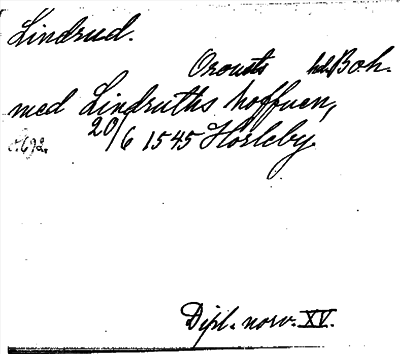 Lindrud.
Orousts hd. Boh.
med Lindruths hoffuen,
20/6 1545 Hörleby.
s. 692.
Dipl. norv. XV.